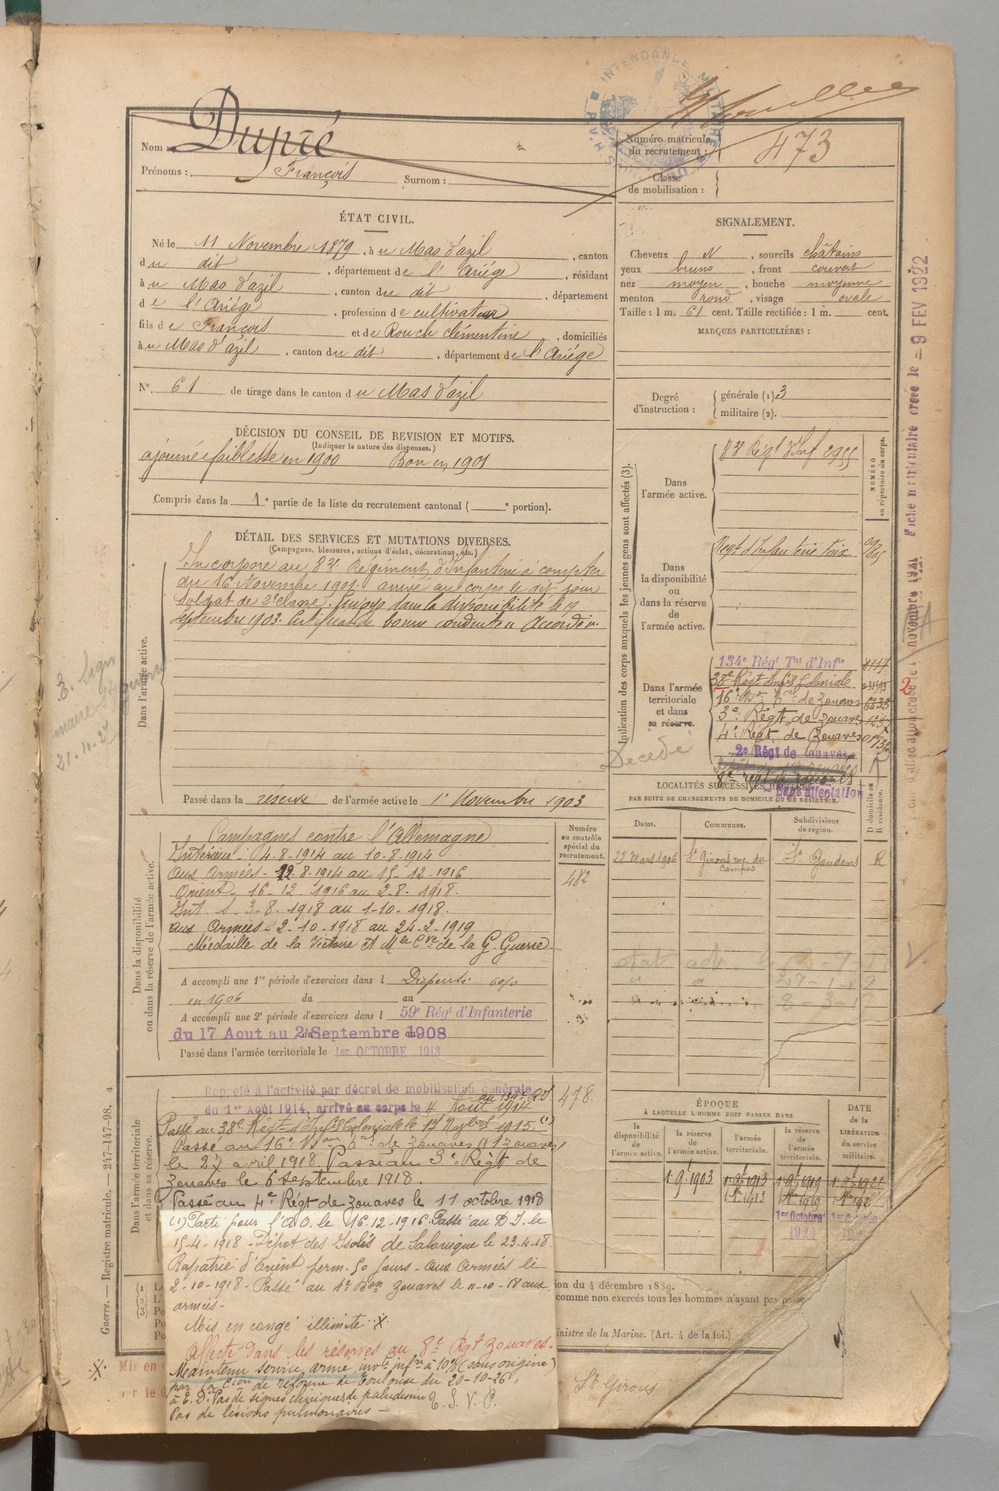 Nom Dupré
Prénoms : François Surnom :
Numéro matricule du recrutement : 473
Classe de mobilisation :
INTENDANCE MILITAIRE
ÉTAT CIVIL.
Né le 11 Novembre 1879, à u Mas d'azil, canton
d u dit, département de l'Ariége, résidant
à u Mas d'azil, canton du dit, département
de l'Ariége, profession de cultivateur
fils de François et de Rouch clémentine, domiciliés
à u Mas d'azil, canton du dit, département de l'Ariége
N°. 61 de tirage dans le canton d u Mas d'azil
DÉCISION DU CONSEIL DE REVISION ET MOTIFS.
(Indiquer la nature des dispenses.)
ajourné faiblesse en 1900 Bon en 1901
Compris dans la 1e partie de la liste du recrutement cantonal ( e portion).
SIGNALEMENT.
Cheveux N, sourcils châtains
yeux bruns, front couvert
nez moyen, bouche moyenne
menton rond, visage ovale
Taille : 1 m. 61 cent. Taille rectifiée : 1 m. cent.
MARQUES PARTICULIÈRES :
Degré d'instruction : générale (1) 3
militaire (2).
DÉTAIL DES SERVICES ET MUTATIONS DIVERSES.
(Campagnes, blessures, actions d'éclat, décorations, etc.)
Dans l'armée active.
Incorporé au 83e Régiment d'Infanterie à compter
du 16 Novembre 1901. arrivé au corps le dit jour
Soldat de 2e classe. Envoyé dans la disponibilité le 19
septembre 1903. Certificat de bonne conduite Accordé.
Passé dans la réserve de l'armée active le 1er Novembre 1903
Indication des corps auxquels les jeunes gens sont affectés (3).
NUMÉRO au répertoire du corps.
Dans l'armée active.
83e Régt d'Inf 2955
Dans la disponibilité ou dans la réserve de l'armée active.
Régt d'Infanterie Foix
Dans l'armée territoriale et dans sa réserve.
134e Régt Tal d'Infie
38e Régt Infie Coloniale
16e de Zouaves
3e Régt de Zouaves
4e Régt de Zouaves
2e Régt de zouaves
8e régt de zouaves
Sans affectation
Décédé
LOCALITÉS SUCCESSIVES HABITÉES
PAR SUITE DE CHANGEMENTS DE DOMICILE OU DE RÉSIDENCE.
Dates. Communes. Subdivisions de région. D domicile ou R résidence.
22 Mars 1906 St Girons rue du Campas St Gaudens R
Dans la disponibilité ou dans la réserve de l'armée active.
Numéro au contrôle spécial du recrutement.
482
Campagnes contre l'Allemagne
Intérieur. 4-8-1914 au 10-8-1914
Aux armées- 12 8-1914 au 15-12-1916
Orient- 16-12-1916 au 2-8-1918.
Int 3-8-1918 au 1-10-1918.
aux Armées- 2-10-1918 au 24-2-1919
Médaille de la Victoire et Mlle Cve de la Ge Guerre.
A accompli une 1re période d'exercices dans l Dispensé
en 1906 du au
A accompli une 2e période d'exercices dans l 59e Régt d'Infanterie
du 17 Aout au 2 Septembre 1908
Passé dans l'armée territoriale le 1er OCTOBRE 1913
Dans l'armée territoriale et dans sa réserve.
Rappelé à l'activité par décret de mobilisation générale
du 1er Août 1914, arrivé au corps le 4 Août 1914
478
Passé au 38e Régt d'Infie Coloniale le 17 1915. (1)
Passé au 16e de Zouaves
le 27 avril 1918. Passé au 3e Régt de
Zouaves le 6 septembre 1918.
Passé au 4e Régt de Zouaves le 11 octobre 1918
(1) Parti pour l'A.O. le 16-12-1916. Passé au D. I. le
15-4-1918 - Dépôt des Isolés de Salonique le 23-4-18.
Rapatrié d'Orient perm. 50 jours - aux armées le
2-10-1918 - Passé au 4e Bon zouaves le 11-10-18 aux
armées -
Mis en congé illimité
Affecté dans les réserves au 8e Rgt Zouaves.
Maintenu service armé invté infre à 10% (sans origine)
par la Con de réforme de Toulouse du 20-10-26,
à E. D. Pas de signes cliniques de paludisme
Pas de lésions pulmonaires - T. S. V. P.
ÉPOQUE
À LAQUELLE L'HOMME DOIT PASSER DANS
la disponibilité de l'armée active. la réserve de l'armée active. l'armée territoriale. la réserve de l'armée territoriale.
DATE de la LIBÉRATION du service militaire.
ion du 4 décembre 1889.
comme non exercés tous les hommes n'ayant pas
inistre de la Marine. (Art. 4 de la loi.)
St Girons
Guerre. — Registre matricule. — 247-147-98.
Fiche matriculaire créée le - 9 FEV 1922
Mis en